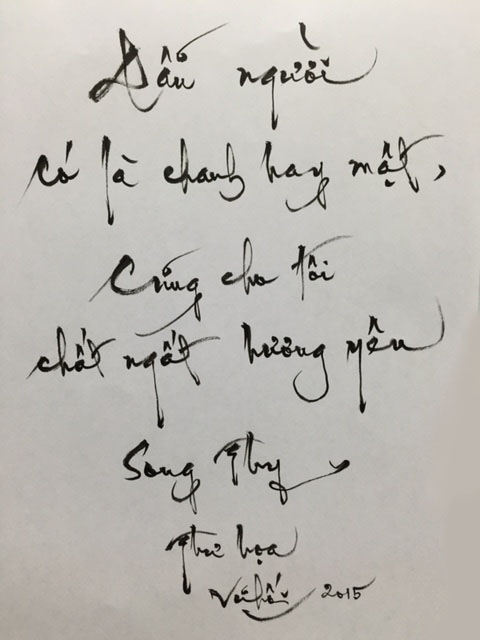 Dẫu người
có là chanh hay mật,
Cũng cho tôi
chất ngất hương yêu
Song Thy
Thư họa
Vũ Hối 2015